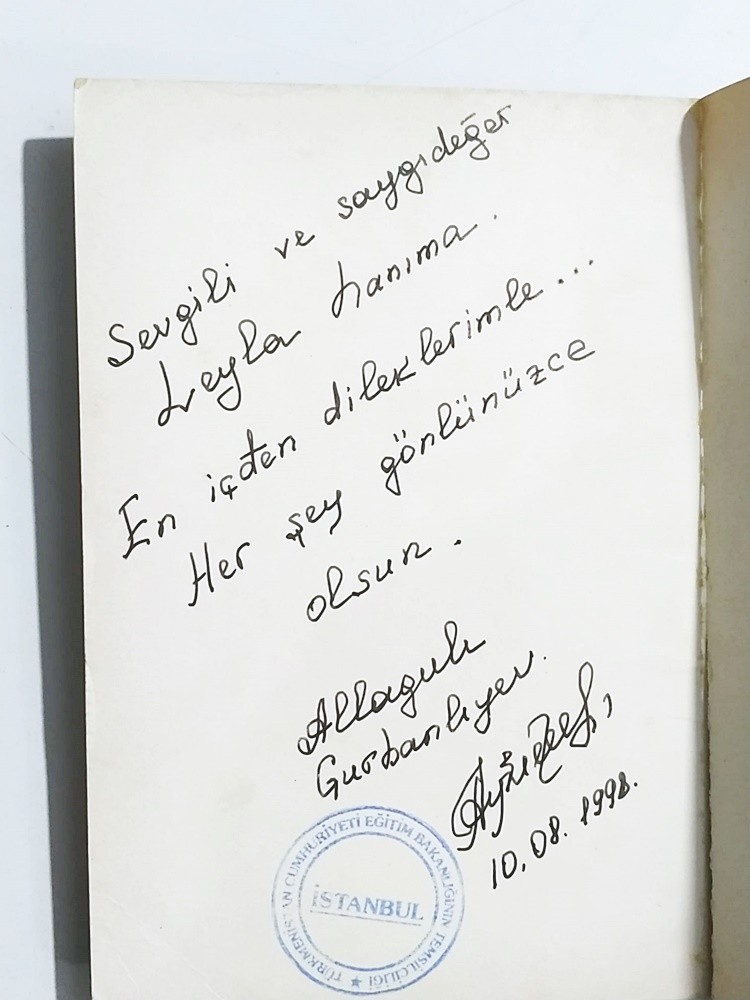 Sevgili ve saygıdeğer
Leyla hanıma.
En içden dileklerimle...
Her şey gönlünüzce
olsun.
Allaguly
Gurbanlıyev.
10.08.1998.
TÜRKMENİSTAN CUMHURİYETİ EĞİTİM BAKANLIĞININ TEMSİLCİLİĞİ ★
İSTANBUL